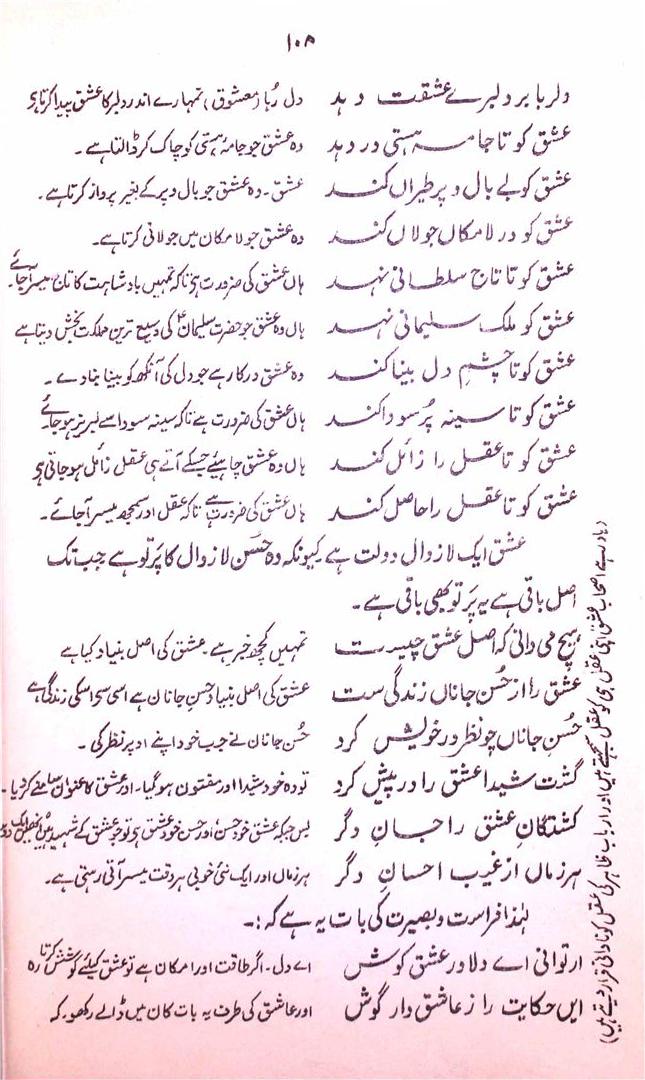 ۱۰۸
دلربا بر دلبرے عشقت دہد دل رُبا (معشوق) تمہارے اندر دلبر کا عشق پیدا کرتا ہی
عشق کو تا جامہ ہستی در دہد وہ عشق جو جامۂ ہستی کو چاک کر ڈالتا ہے۔
عشق کو بے بال و پر طیراں کند عشق۔ وہ عشق جو بال و پر کے بغیر پرواز کرتا ہے۔
عشق کو در لامکاں جولاں کند وہ عشق جو لامکان میں جولانی کرتا ہے۔
عشق کو تا تاج سلطانی نہد ہاں عشق کی ضرورت ہی تاکہ تمہیں بادشاہت کا تاج میسر آجائے۔
عشق کو ملک سلیمانی نہد ہاں وہ عشق جو حضرت سلیمانؑ کی وسیع ترین مملکت بخش دیتا ہے
عشق کو تا چشمِ دل بینا کند وہ عشق درکار ہے جو دل کی آنکھ کو بینا بنا دے۔
عشق کو تا سینہ پُر سودا کند ہاں عشق کی ضرورت ہے تاکہ سینہ سودا سے لبریز ہو جائے
عشق کو تا عقل را زائل کند ہاں وہ عشق چاہیئے جسکے آتے ہی عقل زائل ہو جاتی ہی
عشق کو تا عقل را حاصل کند ہاں عشق کی ضرورت ہے تاکہ عقل اور سمجھ میسر آجائے۔
عشق ایک لازوال دولت ہے کیونکہ وہ حُسن لازوال کا پرتو ہے جب تک
اصل باقی ہے یہ پَرتو بھی باقی ہے۔
ہیچ می دانی کہ اصل عشق چیست تمہیں کچھ خبر ہے۔ عشق کی اصل بنیاد کیا ہے
عشق را از حُسن جاناں زندگی ست عشق کی اصل بنیاد حسنِ جانان ہے اسی سے اسکی زندگی ہے
حُسنِ جاناں چو نظر در خویش کرد حُسن جانان نے جب خود اپنے اوپر نظر کی۔
گشت شیدا عشق را در پیش کرد تو وہ خود شیدا اور مفتون ہو گیا۔ اور عشق کا عنوان سامنے کر دیا۔
کشتگانِ عشق را جانِ دگر پس جبکہ عشق خود حسن اور حسن خود عشق ہی تو جو عشق کے شہید ہیں انھیں ایک
ہر زماں از غیب احسانِ دگر ہر زمان اور ایک نئی خوبی ہر وقت میسر آتی رہتی ہے۔
لہٰذا فراست و بصیرت کی بات یہ ہے کہ:۔
ار توانی اے دلا در عشق کوش اے دل۔ اگر طاقت اور امکان ہے تو عشق کیلئے کوشش کرتا رہ
ایں حکایت را ز عاشق دار گوش اور عاشق کی طرف یہ بات کان میں ڈالے رکھو۔ کہ
(ہمارے اصحاب عشق اپنی عقل ہی کو عقل سمجھتے ہیں اور ارباب ظاہر کی عقل کو نادانی قرار دیتے ہیں)